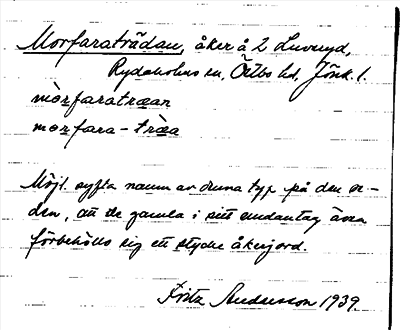 Morfaraträdan, åker å 2 Luvnyd,
Rydaholms sn, Östbo hd, Jönk. l.
mòrfaratræan
morfara-træa
Möjl. syfta namn av denna typ på den se-
den, att de gamla i sitt undantag även
förbehöllo sig ett stycke åkerjord.
Fritz Andersson 1939.